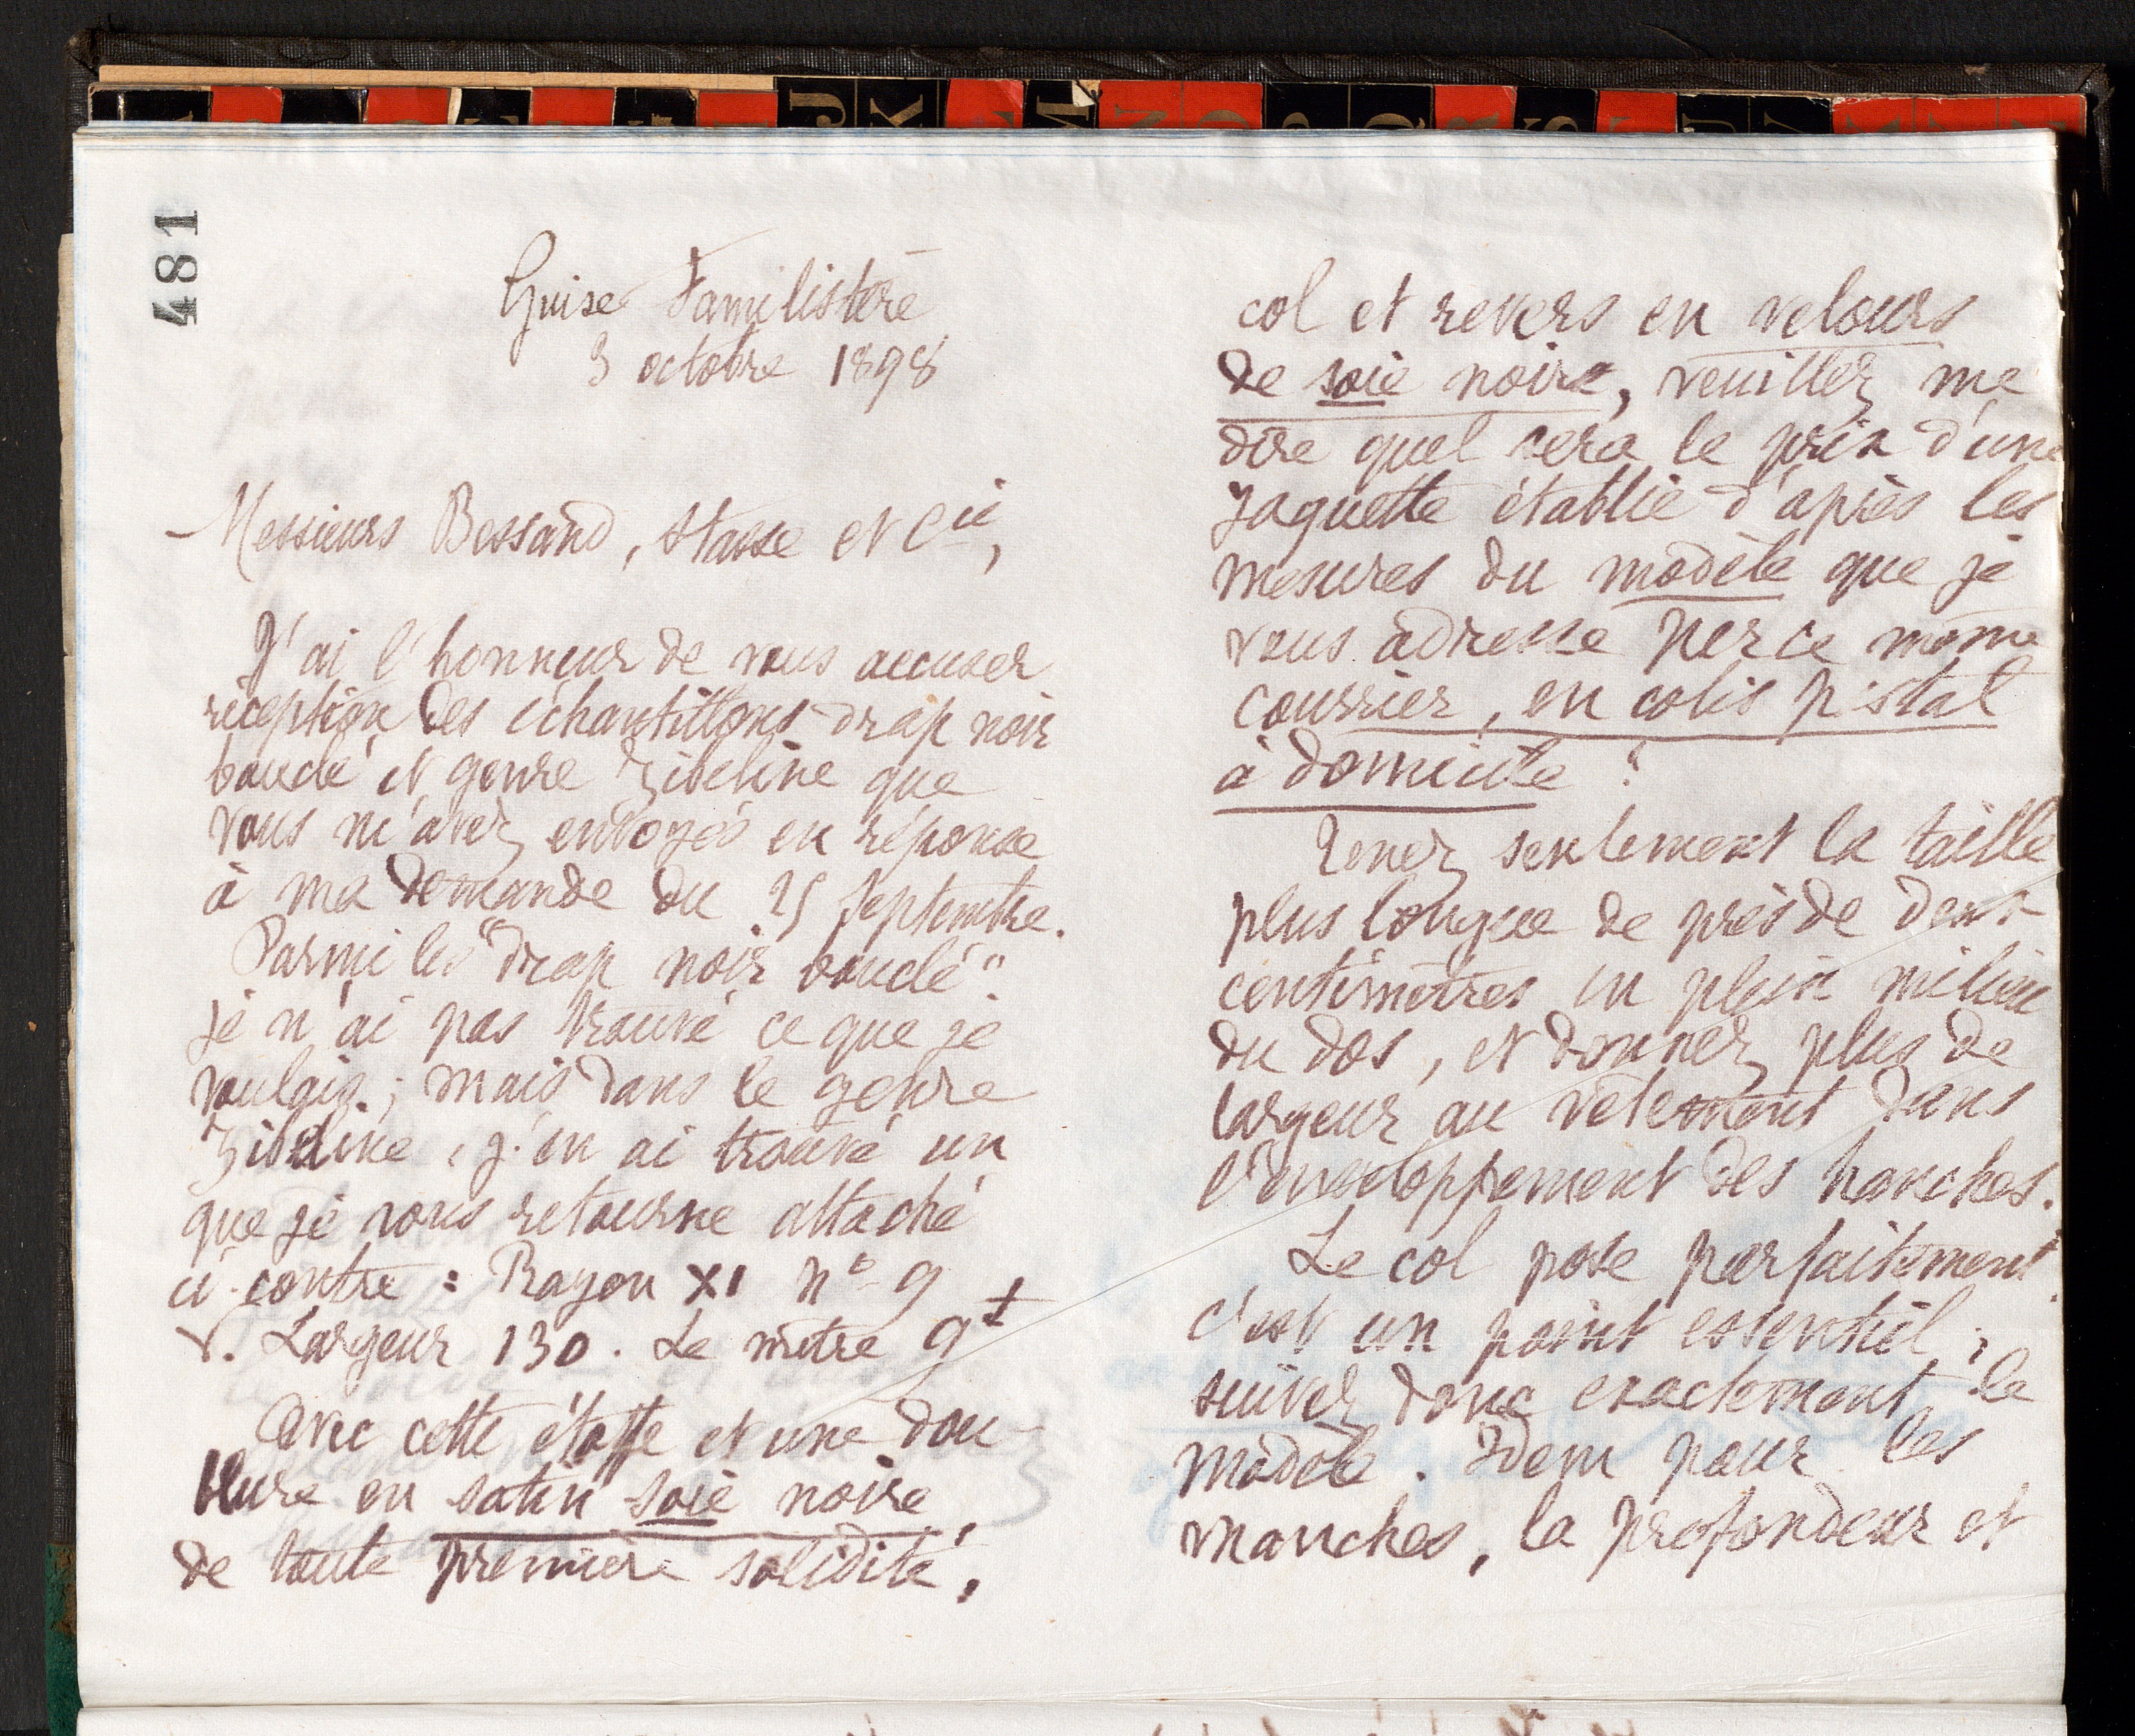 481
Guise Familistère
3 octobre 1898
Messieurs Bessand, Stasse et Cie,
J'ai l'honneur de vous accuser
réception des échantillons drap noir
bouclé et genre Zibeline que
vous m'avez envoyés en réponse
à ma demande du 25 septembre.
Parmi les "drap noir bouclé"
je n'ai pas trouvé ce que je
voulais ; mais dans le genre
Zibeline, j'en ai trouvé un
que je vous retourne attaché
ci-contre : Rayon XI nº 9
v. Largeur 130. Le mètre 9f
Avec cette étoffe et une dou-
blure en satin soie noire,
de toute première solidité,
col et revers en velours
de soie noire, veuillez me
dire quel sera le prix d'une
jaquette établie d'après les
mesures du modèle que je
vous adresse par ce même
courrier, en colis postal
à domicile ?
Tenez seulement la taille
plus longue de près de deux
centimètres en plein milieu
du dos, et donnez plus de
largeur au vêtement dans
l'enveloppement des hanches.
Le col pose parfaitement
c'est un point essentiel ;
suivez donc exactement le
modèle. Idem pour les
manches, la profondeur et
J K L M N O P Q R S T U V